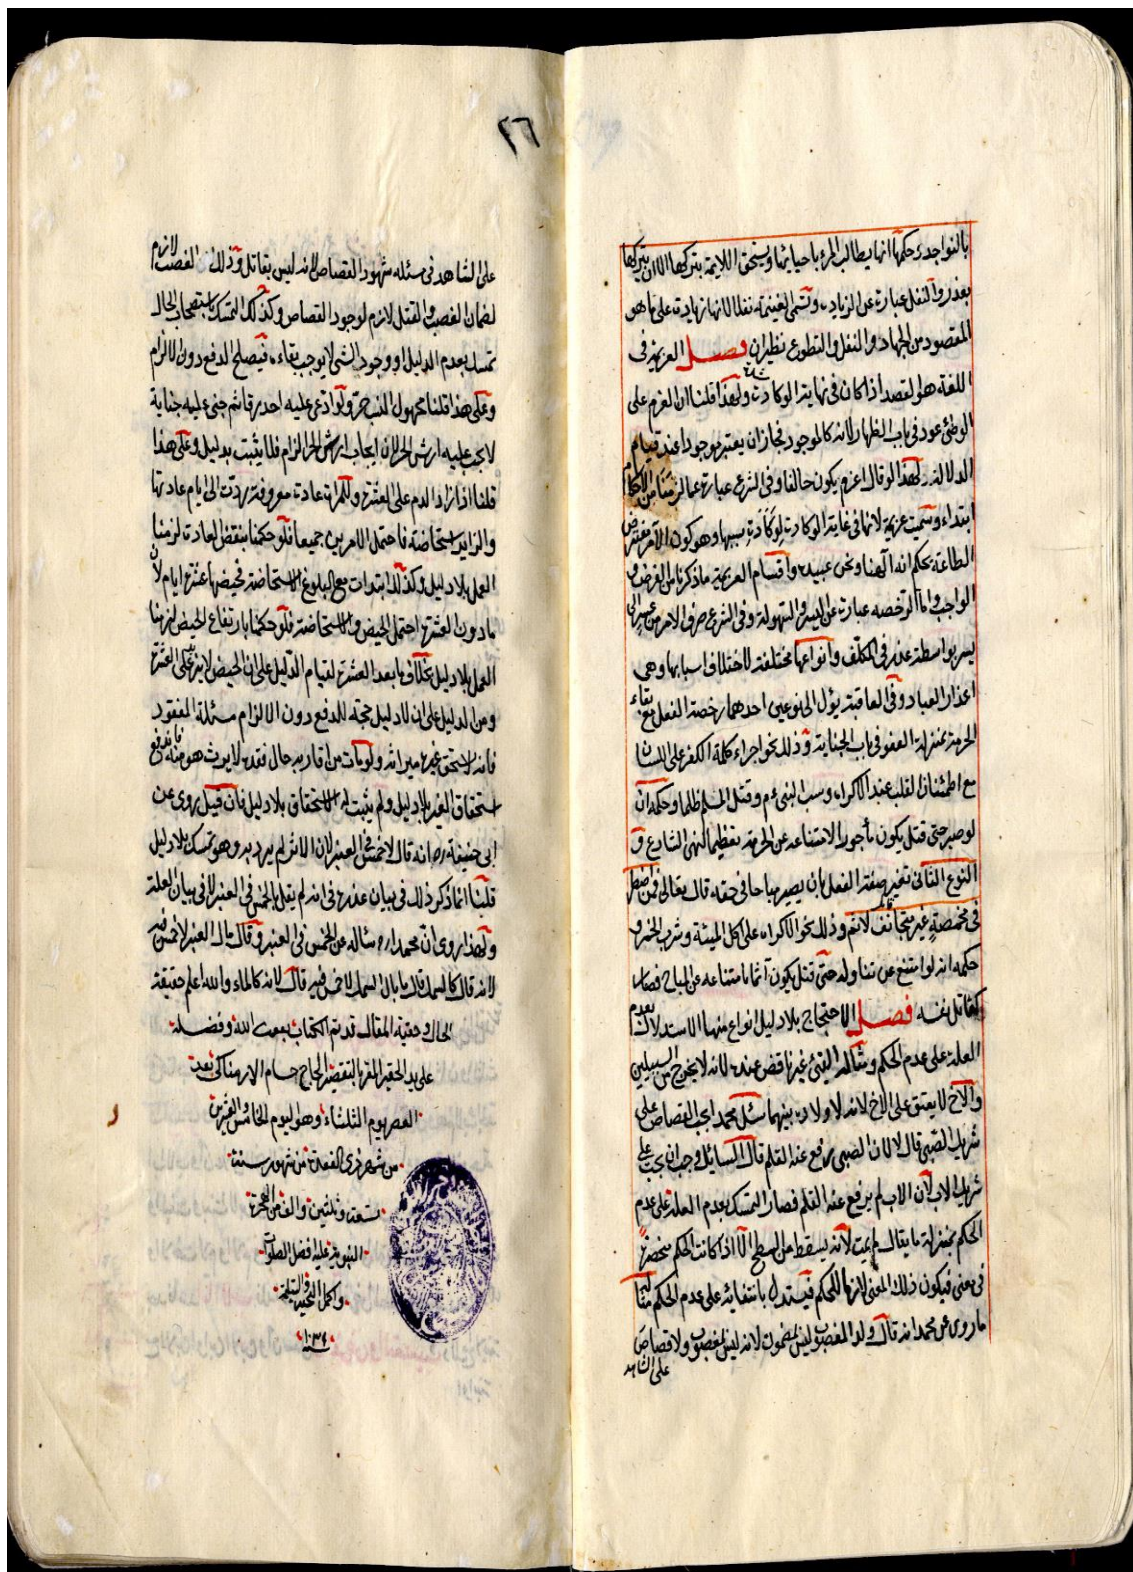 بالنواجذ وحكمها انها يطالب المرء باحيائها ويستحق اللايمة بتركها الا ان يتركها
بعذر والنفل عبارة عن الزيادة وتسمى الغنيمة نفلا لانها زيادة على ما هو
المقصود من الجهاد والنفل والتطوع نظيران فصل العزيمة فى
اللغة هو القصد اذا كان فى نهاية الوكادة ولهذا قلنا ان العزم على
الوطئ عود فى باب الظهار لانه كالموجود فجاز ان يعتبر موجودا عند قيام
الدلالة ولهذا لو قال اعزم يكون حالفا وفى الشرع عبارة عما لزمنا من الاحكام
ابتداء وسميت عزيمة لانها فى غاية الوكادة لوكادة سببها وهو كون الآمر مفترض
الطاعة بحكم انه آلهنا ونحن عبيده واقسام العزيمة ما ذكرنا من الفرض و
الواجب واما الرخصه عبارة عن اليسر والسهولة وفى الشرع صرف الامر من عسر الى
يسر بواسطة عذر فى المكلف وانواعها مختلفة لاختلاف اسبابها وهى
اعذار العباد وفى العاقبة يؤل الى نوعين احدهما رخصة الفعل مع بقاء
الحرمة بمنزلة العفو فى باب الجناية وذلك نحو اجراء كلمة الكفر على اللسان
مع اطمئنان القلب عند الاكراه وسب النبى ءم وقتل المسلم ظلما وحكمه ان
لو صبر حتى قتل يكون مأجورا لامتناعه عن الحرمة تعظيما لنهى الشارع و
النوع الثانى تغير صفة الفعل بان يصير مباحا فى حقه قال تعالى فمن اضطر
فى مخمصة غير متجانف لاثم وذلك نحو الاكراه على اكل الميتة وشرب الخمر و
حكمه انه لو امتنع عن تناوله حتى قتل يكون آثما بامتناعه عن المباح فصار
كقاتل نفسه فصل الاحتجاج بلا دليل انواع منها الاستدلال بعدم
العلة على عدم الحكم ومثاله القئ غير ناقض عنده لانه لا يخرج من السبيلين
والاخ لا يعتق على الاخ لانه لا ولاد بينهما سئل محمد ايجب القصاص على
شريك الصبى قال لا لان الصبى رفع عنه القلم قال السايل وجب ان يجب على
شريك الاب لان الاب لم يرفع عنه القلم فصار التمسك بعدم العلة على عدم
الحكم بمنزلة ما يقال لم يمت لانه لم يسقط من السطح الا اذا كانت الحكم منحصرة
فى معنى فيكون ذلك المعنى لازما للحكم فيستدل بانتفائه على عدم الحكم مثاله
ما روى عن محمد انه قال ولد المغصوب ليس بمضمون لانه ليس بمغصوب ولا قصاص
على الشاهد
٢٦
على الشاهد فى مسئلة شهود القصاص لانه ليس بقاتل وذلك الغصب لازم
لضمان الغصب والقتل لازم لوجود القصاص وكذلك التمسك باستصحاب الحال
تمسك بعدم الدليل او وجود الشئ لا يوجب بقاءه فيصلح للدفع دون الالزام
وعلى هذا قلنا مجهول النسب حر ولو ادعى عليه احد رقا ثم جنى عليه جناية
لا يجب عليه ارش الحر لان ايجاب ارش الحر الزام فلا يثبت بدليل وعلى هذا
قلنا اذا زاد الدم على العشرة وللمراة عادة معروفة ردت الى ايام عادتها
والزايد استحاضة فاحتمل الامرين جميعا فلو حكمنا بنقض العادة لزمنا
العمل بلا دليل وكذلك ابتدات مع البلوغ الاستحاضة فحيضها عشرة ايام لان
ما دون العشرة احتمل الحيض والاستحاضة فلو حكمنا بارتفاع الحيض لزمنا
العمل بلا دليل بخلاف ما بعد العشرة لقيام الدليل على ان الحيض لا يزيد على العشرة
ومن الدليل على ان لا دليل حجة للدفع دون الالزام مسئلة المفقود
فانه لا يستحق غيره ميراثه ولو مات من اقاربه حال فقده لا يرث هو منه فاندفع
استحقاق الغير بلا دليل ولم يثبت له الاستحقاق بلا دليل فان قيل روى عن
ابى حنيفة ره انه قال لا خمس فى العنبر لان الاثر لم يرد به وهو تمسك بلا دليل
قلنا انما ذكر ذلك فى بيان عذره فى انه لم يقل بالخمس فى العنبر لا فى بيان العلة
ولهذا روى ان محمدا ره ساله عن الخمس فى العنبر وقال ما بال العنبر لا خمس فيه
لانه قال كالسمك قال ما بال السمك لا خمس فيه قال لانه كالماء والله اعلم حقيقة
الحال وحقية المقال قد تم الكتاب بعون الله وفضله
على يد الحقير المقر بالتقصير الحاج حسام الارمناكى بعد
العصر يوم الثلثاء وهو اليوم الخامس العشرين
من شهر ذى القعدة من شهور سنة
تسعة وثلثين والف من الهجرة
النبوية عليه افضل الصلوات
واكمل التحية والتسليمة